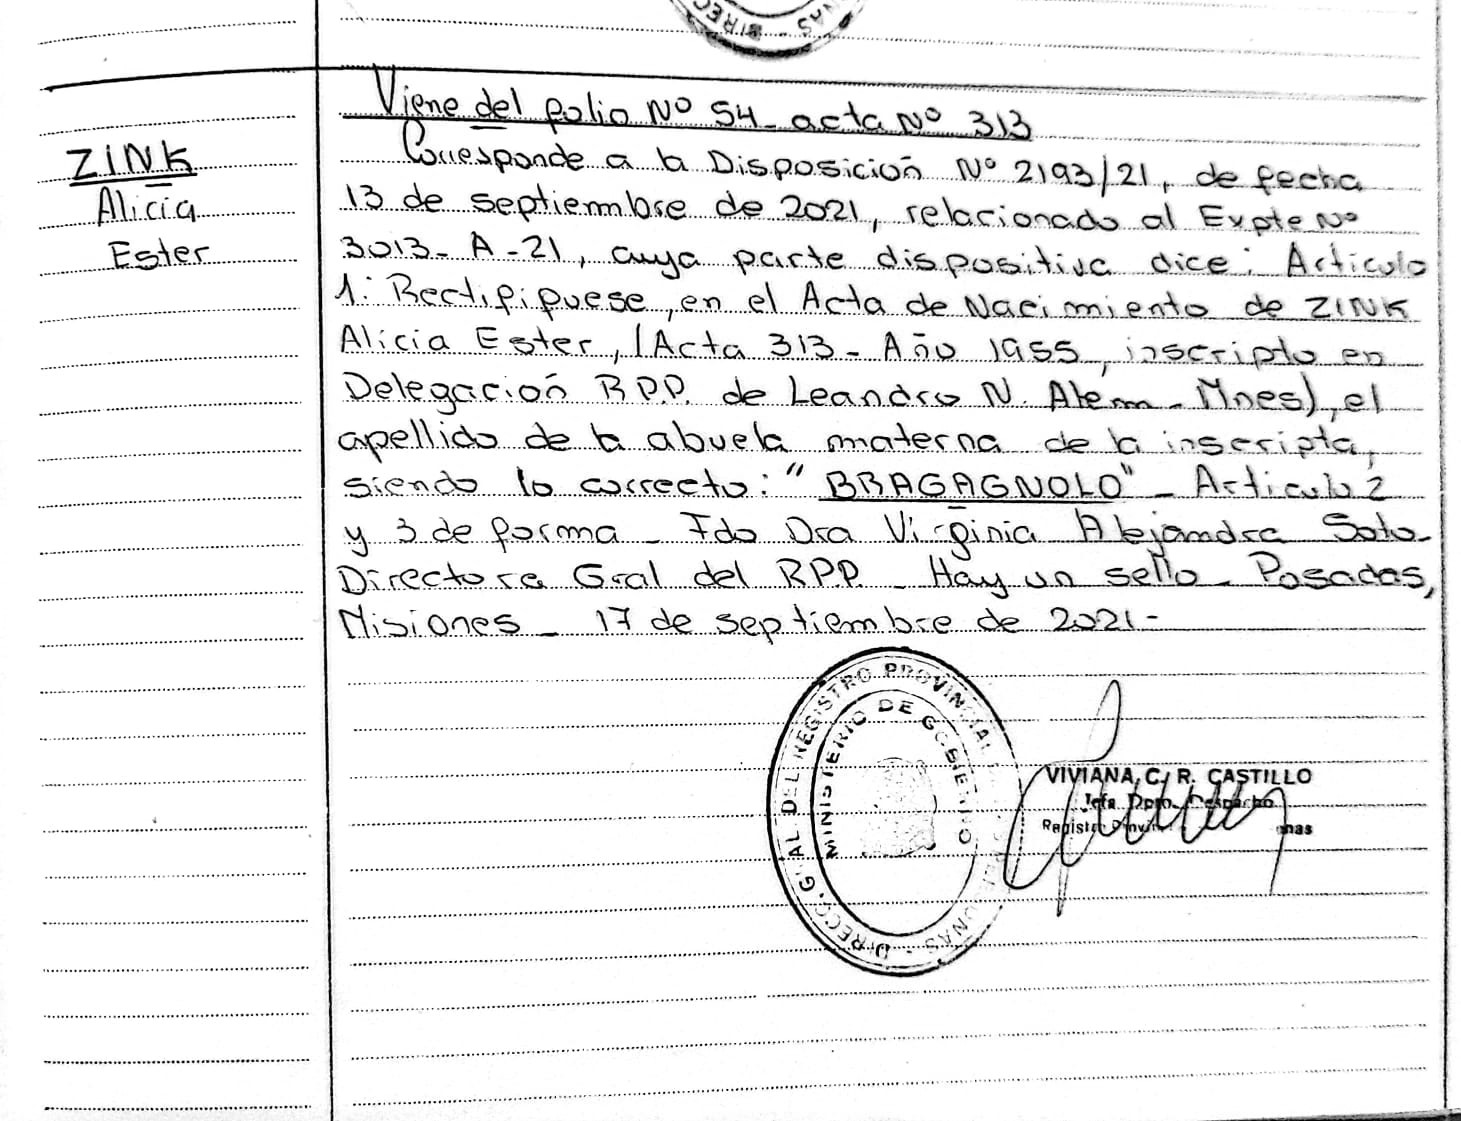 DIREC
NAS -
Viene del folio Nº 54 - acta Nº 313
ZINK
Alicia
Ester
Corresponde a la Disposición Nº 2193/21, de fecha
13 de septiembre de 2021, relacionado al Expte Nº
3013 - A - 21, cuya parte dispositiva dice: Articulo
1: Rectifiquese, en el Acta de Nacimiento de ZINK
Alicia Ester, (Acta 313 - Año 1955, inscripto en
Delegación R.P.P. de Leandro N. Alem - Mnes), el
apellido de la abuela materna de la inscripta,
siendo lo correcto: "BRAGAGNOLO" - Articulo 2
y 3 de forma - Fdo Dra Virginia Alejandra Soto -
Directora Gral del R.P.P. - Hay un sello - Posadas,
Misiones - 17 de septiembre de 2021 -
DIRECC. GRAL DEL REGISTRO PROVINCIAL DE LAS PERSONAS -
MINISTERIO DE GOBIERNO
VIVIANA C. R. CASTILLO
Jefa Dpto. Despacho
Registro Provin
onas